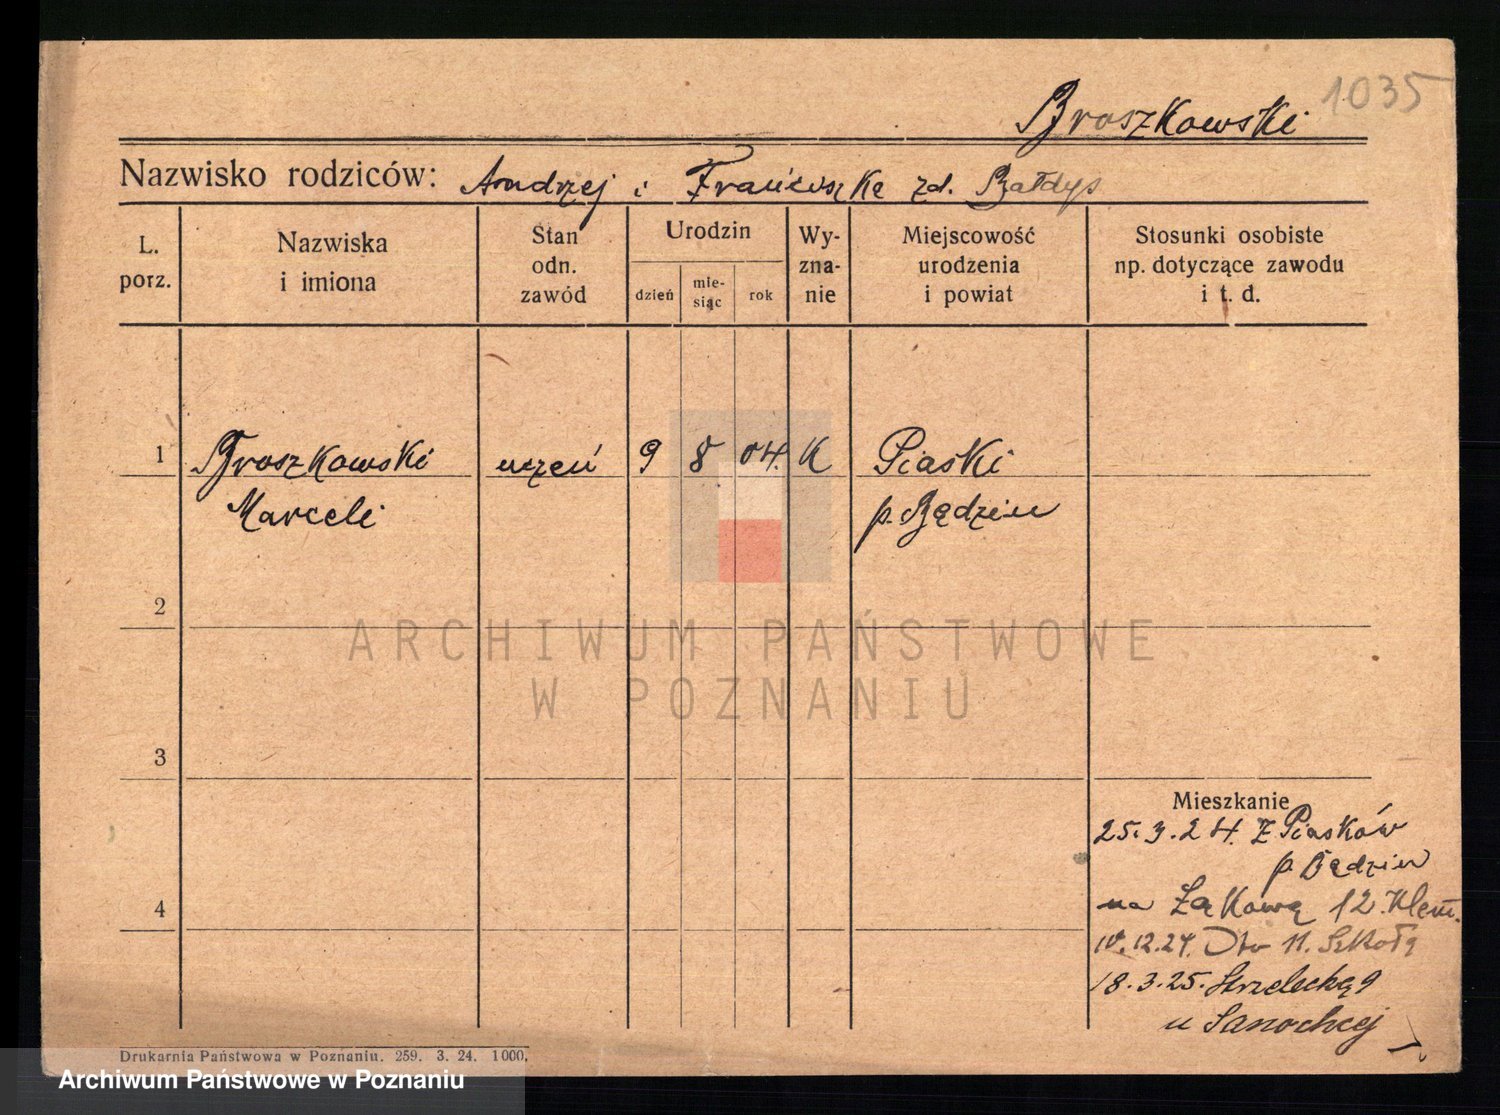 1035
Broszkowski
Nazwisko rodziców: Andrzej i Franciszka zd. Bałdys
L. porz.
Nazwiska i imiona
Stan odn. zawód
Urodzin
dzień
mie-siąc
rok
Wy-zna-nie
Miejscowość urodzenia i powiat
Stosunki osobiste np. dotyczące zawodu i t. d.
1 Broszkowski uczeń 9 8 04. K Piaski
Marceli p. Będzin
2
ARCHIWUM PAŃSTWOWE
W POZNANIU
3
Mieszkanie
25.3.24. Z Piasków
p. Będzin
4
na Łąkową 12. Klem.
12.24. 11. Szkolą
18.3.25. Strzelecką 9
u Sanockiej
Drukarnia Państwowa w Poznaniu. 259. 3. 24. 1000.
Archiwum Państwowe w Poznaniu